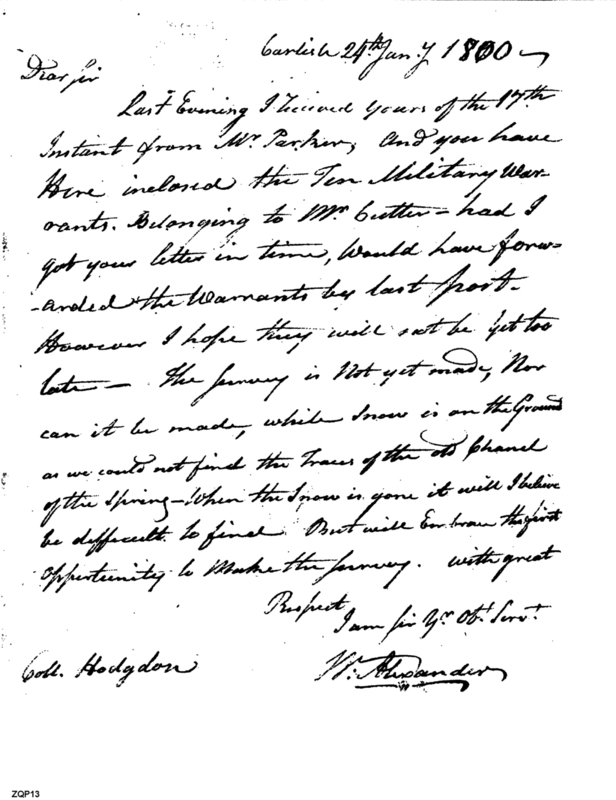 Carlisle 24th Jany 1800
Dear Sir
Last Evening I Received yours of the 17th
Instant from Mr. Parker, And you have
Here inclosed the Ten Military War
rants. Belonging to Mr. Cutter - had I
got your letter in time, Would have forw-
-arded the Warrants by last post.
However I hope they will not be yet too
late - The Survey is Not yet made, Nor
can it be made, while Snow is on the Ground
as we could not find the Traces of the old Chanel
of the Spring - When the Snow is gone it will I belive
be difficult to find. But will Embrace the first
Opportunity to Make the Survey. with great
Respect
I am Sir Yr. Obt. Servt.
Coll. Hodgdon
Wm. Alexander
ZQP13